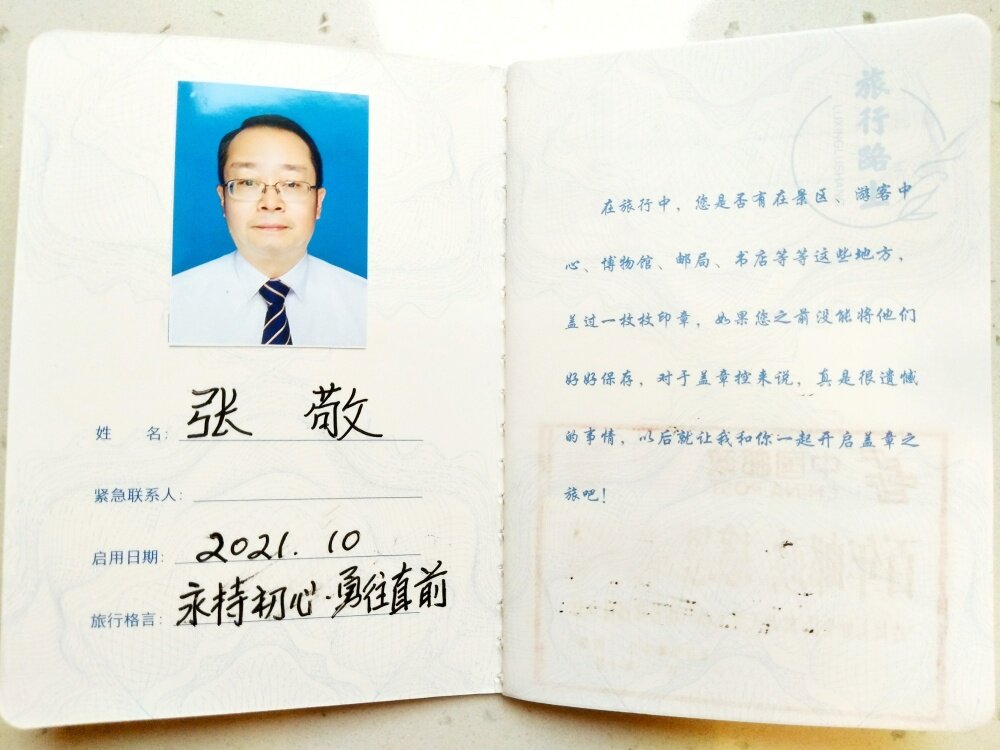 姓 名: 张 敬
紧急联系人:
启用日期: 2021.10
旅行格言: 永持初心·勇往直前
旅行路上
在旅行中，您是否有在景区、游客中
心、博物馆、邮局、书店等等这些地方，
盖过一枚枚印章，如果您之前没能将他们
好好保存，对于盖章控来说，真是很遗憾
的事情，以后就让我和你一起开启盖章之
旅吧！